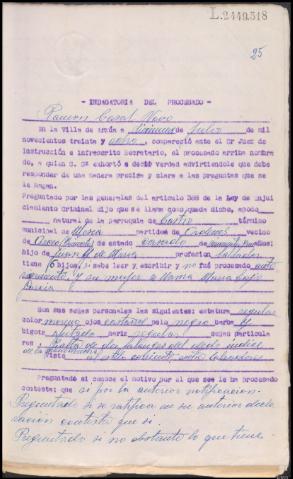 L.2440518
25
- INDAGATORIA DEL PROCESADO -
Ramon Casal
En la Villa de Arzúa a de Julio de mil
novecientos treinta y ocho, compareció ente el Sr Juez de
instrucción e infrascrito Secretario, el procesado arriba nombra
do, a quien S. Sª exhortó a decir verdad advirtiendole que debe
responder de una manera precisa y clara a las preguntas que se
le hagan.
Preguntado por las generales del articulo 388 de la Ley de Enjui
ciamiento Criminal dijo que se llama como queda dicho, apoda
natural de la parroquia de Castro término
municipal de Mesia partido de Ordenes vecino
de de estado casado de años:
hijo de de Maria profesion labrador
tiene hijos, sabe leer y escribir y no fué procesado
y su mujer se llama Maria
Garcia
Son sus señas personales las siguientes: estatura regular
color ojos castaños pelo negro barba
bigote nariz regular señas particula
res Falta de dos falanges del dedo indice
de la
Viste
Preguntado si conoce el motivo por el que se le ha procesado
contesta: que si por la anterior notificacion.
Preguntado si se ratifica en su anterior decla
racion contesta que si.
Preguntado si no obstante lo que tiene